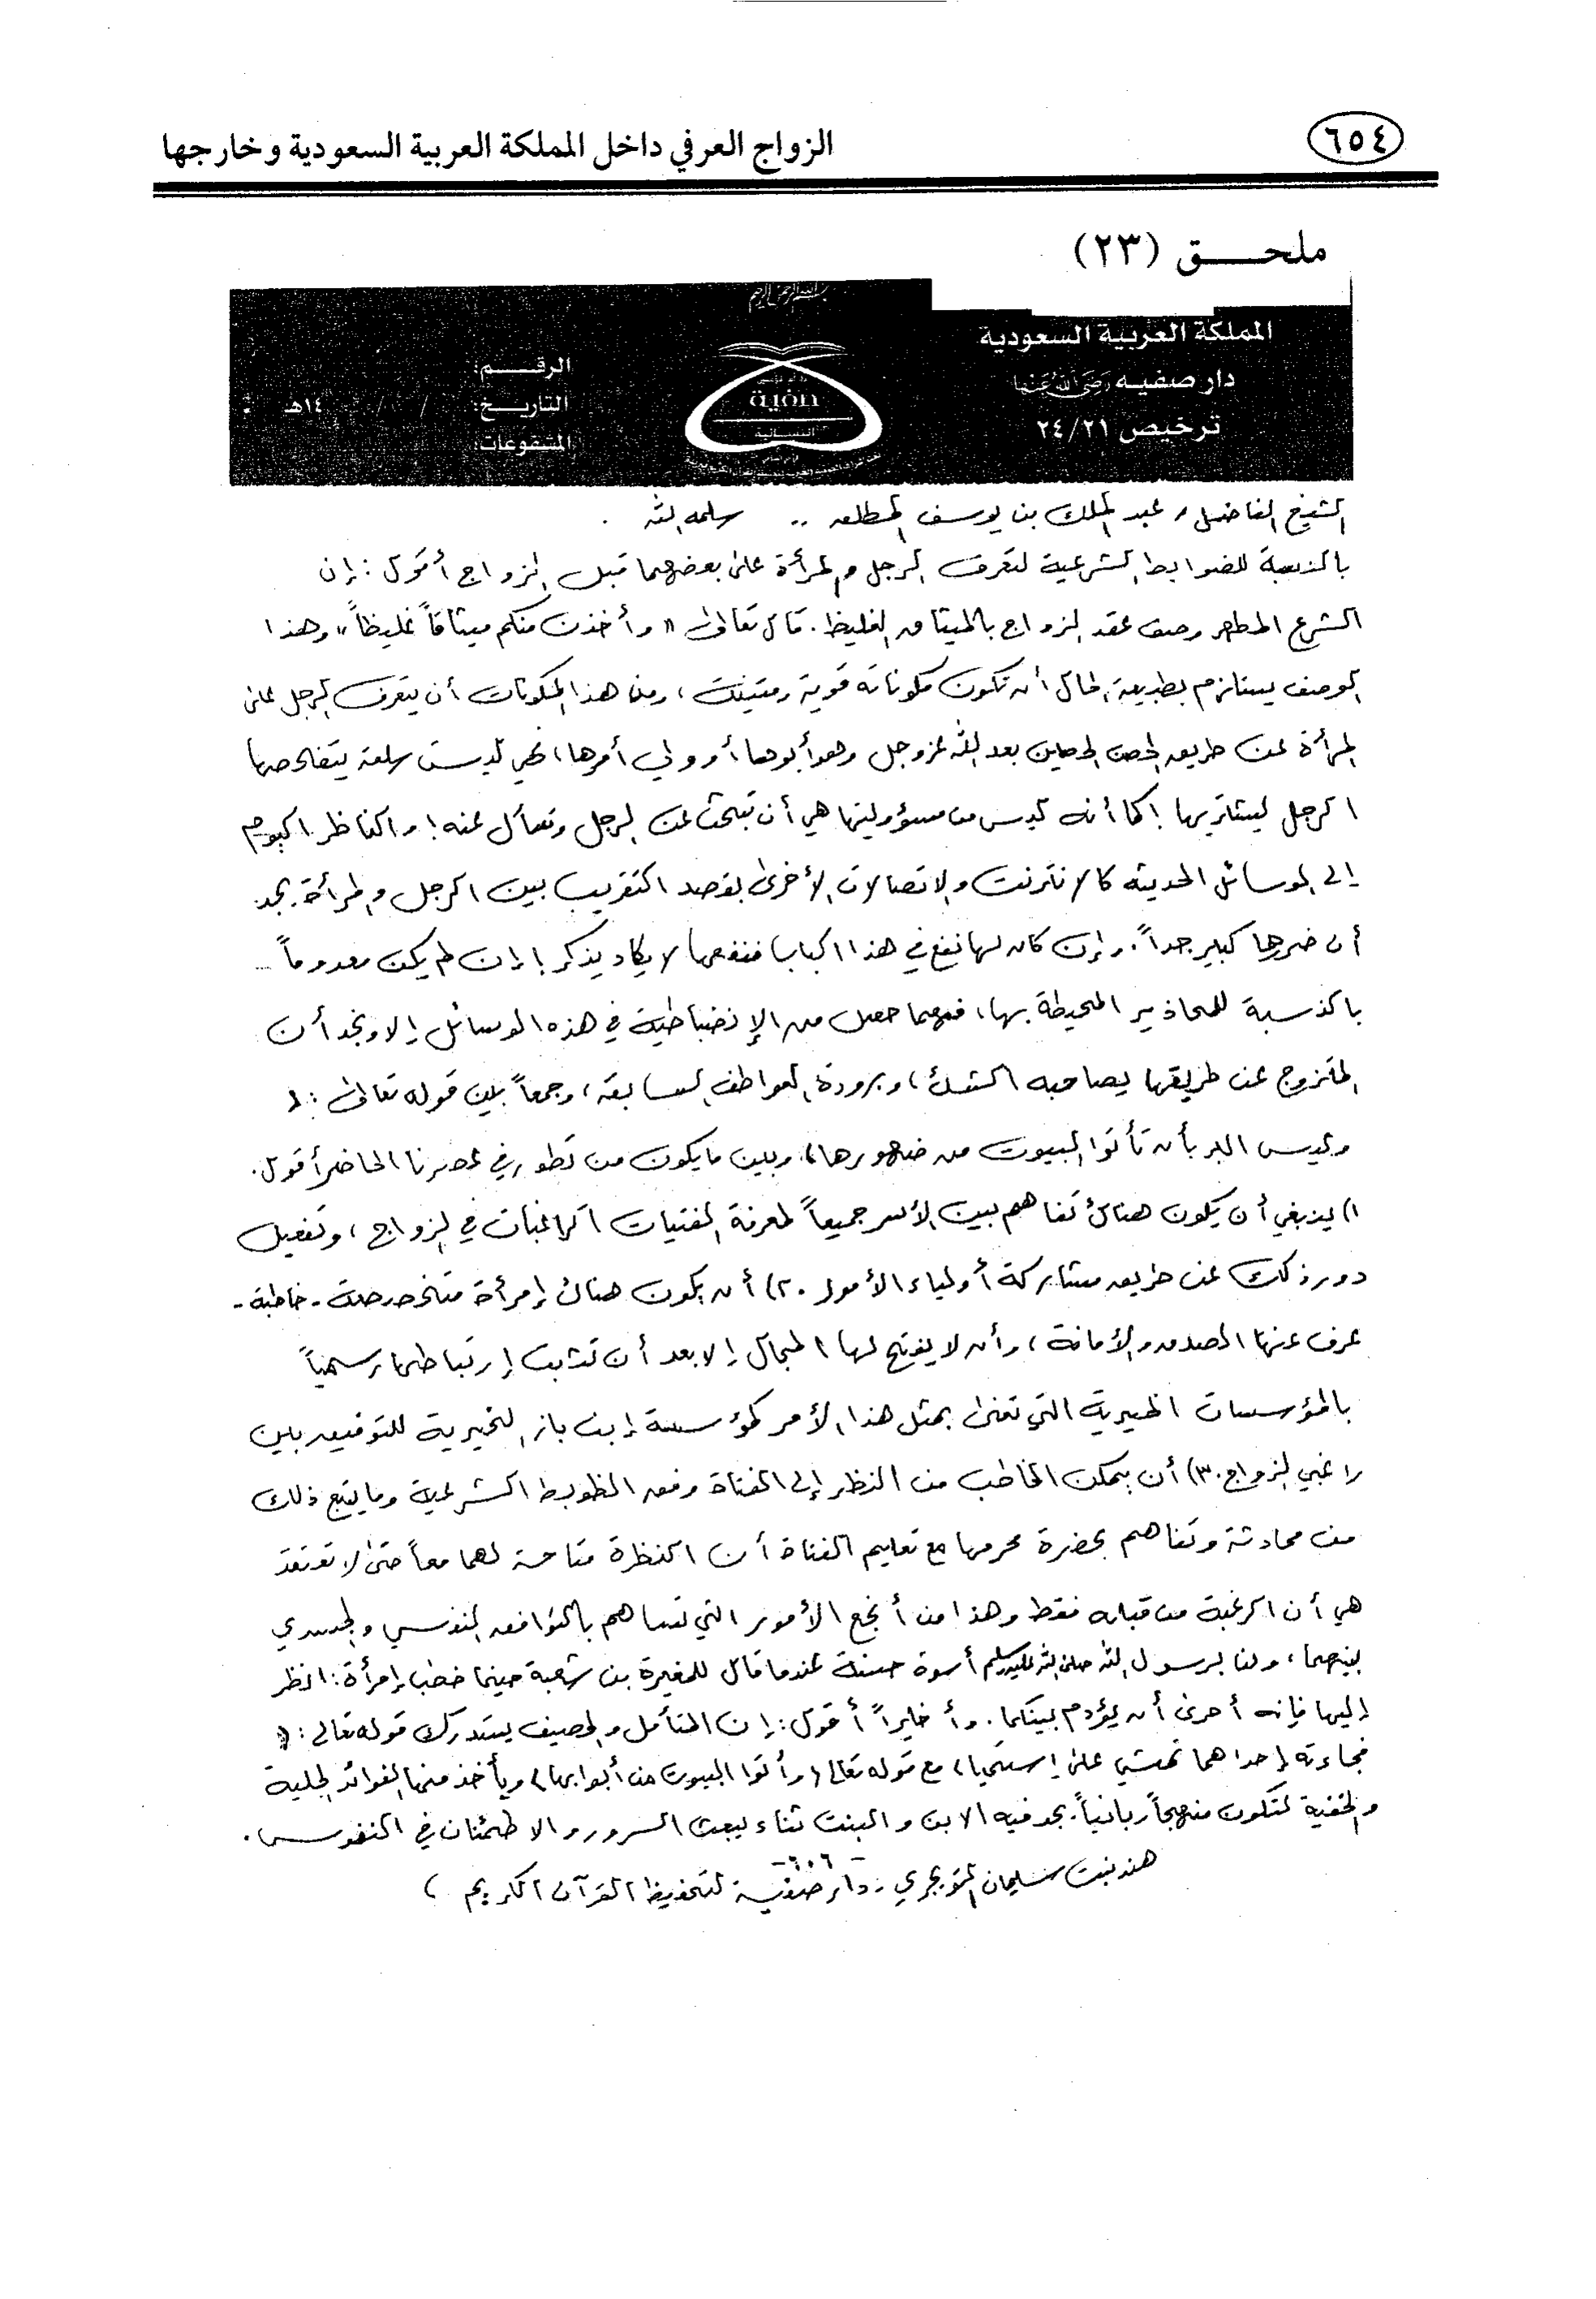 ٦٥٤
الزواج العرفي داخل المملكة العربية السعودية وخارجها
ملحـــــق (٢٣)
بسم الله الرحمن الرحيم
المملكة العربية السعودية
دار صفيـه رضي الله عنها
ترخيص ٢٤/٢١
صفية
النسـائية
الرقـــــم:
التاريـــخ: / / ١٤هـ
المشفوعات:
الشيخ الفاضل / عبد الملك بن يوسف المطلق .. سلمه الله .
بالنسبة للضوابط الشرعية لتعرف الرجل والمرأة على بعضهما قبل الزواج أقول : إن
الشرع المطهر وصف عقد الزواج بالميثاق الغليظ . قال تعالى « وأخذن منكم ميثاقاً غليظاً » وهذا
الوصف يستلزم بطبيعة الحال أن تكون مكوناته قوية ومتينة ، ومن هذا المكونات أن يتعرف الرجل على
المرأة عن طريق الحصن الحصين بعد الله عز وجل وهو أبوها أو ولي أمرها ، فهي ليست سلعة يتفحصها
الرجل ليشتريها ! كما أنه ليس من مسؤوليتها هي أن تبحث عن الرجل وتسأل عنه ! والناظر اليوم
إلى الوسائل الحديثه كالإنترنت والاتصالات الأخرى بقصد التقريب بين الرجل والمرأة . يجد
أن ضررها كبير جداً . وإن كان لها نفع في هذا الباب فنفعها لا يكاد يذكر ! إن لم يكن معدوماً ...
بالنسبة للمحاذير المحيطة بها ، فمهما حصل من الإنضباطية في هذه الوسائل إلا ونجد أن
المتزوج عن طريقها يصاحبه الشك ، وبرودة العواطف السابقة ، وجمعاً بين قوله تعالى : (
وليس البر بأن تأتوا البيوت من ضهورها ) وبين ما يكون من تطور في عصرنا الحاضر أقول .
١) ينبغي أن يكون هناك تفاهم بين الأسر جميعاً لمعرفة الفتيات الراغبات في الزواج ، وتفعيل
دور ذلك عن طريق مشاركة أولياء الأمور . ٢) أن يكون هناك إمرأة متخصصة - خاطبة -
عرف عنها الصدق والأمانة ، وأن لا يفتح لها المجال إلا بعد أن تثبت إرتباطها رسمياً
بالمؤسسات الخيرية التي تعنى بمثل هذا الأمر كمؤسسة إبن باز الخيرية للتوفيق بين
راغبي الزواج . ٣) أن يمكن الخاطب من النظر إلى الفتاة وفق الظوابط الشرعية وما يتبع ذلك
من محادثة وتفاهم بحضرة محرمها مع تعليم الفتاة أن النظرة متاحة لهما معاً حتى لا تعتقد
هي أن الرغبة من قبله فقط وهذا من أنجع الأمور التي تساهم بالتوافق النفسي والجسدي
بينهما ، ولنا برسول الله صلى الله عليه وسلم أسوة حسنة عندما قال للمغيرة بن شعبة حينما خطب إمرأة : انظر
إليها فإنه أحرى أن يؤدم بينكما . وأخيراً أقول : إن المتأمل والحصيف يستدرك قوله تعالى : «
فجاءته إحداهما تمشي على إستحيا ) مع قوله تعالى ( وأتوا البيوت من أبوابها ) ويأخذ منها الفوائد الجلية
والخفية لتكون منهجاً ربانياً . يجد فيه الابن والبنت ثناء يبعث السرور والاطمئنان في النفوس .
-٦٠٦-
هند بنت سليمان التويجري . دار صفية لتحفيظ القرآن الكريم )